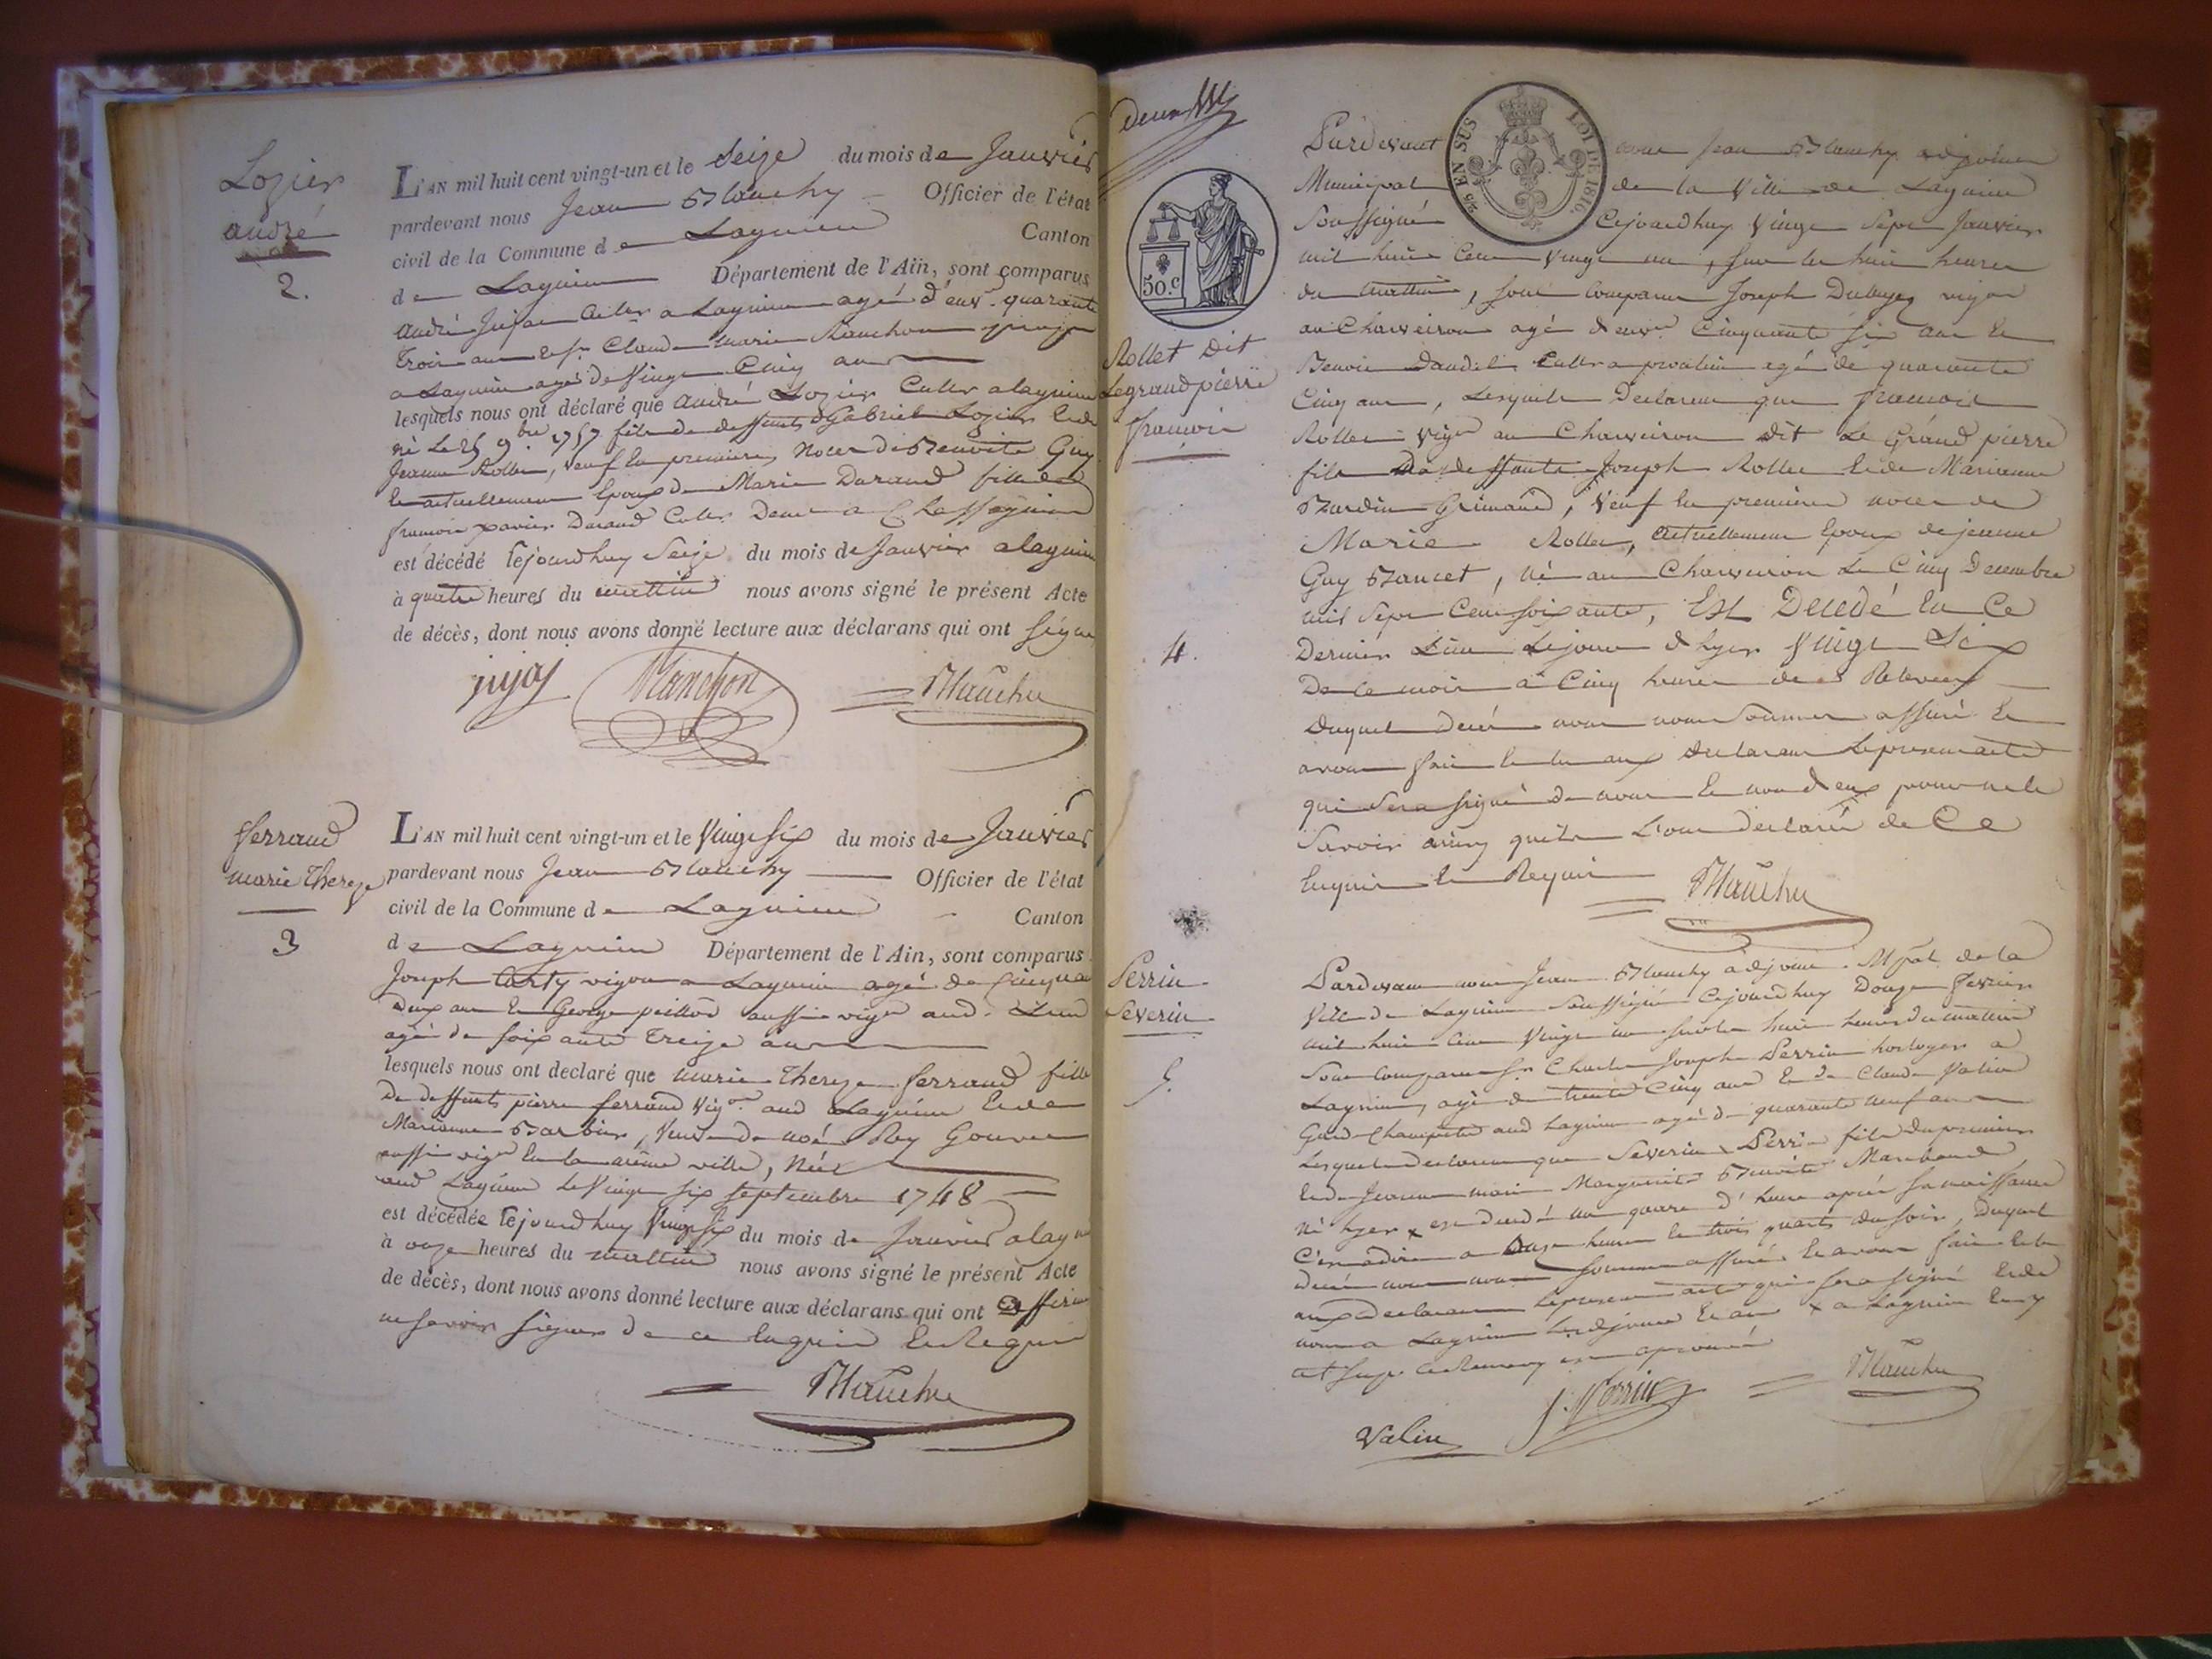 Lozier
andré
2.
L'AN mil huit cent vingt-un et le Seize du mois de Janvier
pardevant nous Jean Blanchy Officier de l'état
civil de la Commune de Lagnieu Canton
de Lagnieu Département de l'Ain, sont comparus
André Jujat a Lagnieu agé d'env. quarante
trois ans Claude Marie
a Lagnieu agé de Vingt Cinq ans
lesquels nous ont déclaré que André Lozier Cultr a lagnieu
né Le 25 9bre 1757 fils de deffunts Gabriel Lozier
Jeanne Rollet, veuf en premieres Noces de Benoite Guy
et actuellement Epoux de Marie Durand fille de
françois xavier Durand Cultr
est décédé Cejourdhuy Seize du mois de Janvier a lagnieu
à quatre heures du mattin nous avons signé le présent Acte
de décès, dont nous avons donné lecture aux déclarans qui ont signé
jujat Blanchy
ferrand
marie Thereze
3
L'AN mil huit cent vingt-un et le Vingt six du mois de Janvier
pardevant nous Jean Blanchy Officier de l'état
civil de la Commune de Lagnieu Canton
de Lagnieu Département de l'Ain, sont comparus
Joseph vigon a Lagnieu agé de Cinquante
Deux ans et George peillod aussi vign aud. Lieu
agé de soixante treize ans
lesquels nous ont declaré que marie Thereze ferrand fille
de deffunts pierre ferrand Vign aud Lagnieu et de
Marianne Barbier, veuve de noé Rey
aussi vign en la même ville, Née
aud Lagnieu le Vingt six septembre 1748
est décédée Cejourdhuy Vingt six du mois de Janvier a lagnieu
à onze heures du mattin nous avons signé le présent Acte
de décès, dont nous avons donné lecture aux déclarans qui ont affirmé
ne savoir signer de ce Enquis et Requis
Blanchy
50.c
25 EN SUS
LOI DE 1816.
Rollet Dit
Legrandpierre
françois
4.
Pardevant nous Jean Blanchy adjoint
Municipal de la Ville de Lagnieu
Soussigné Cejourdhuy Vingt Sept Janvier
mil huit Cent vingt un, sur les huit heures
du mattin, sont Comparus Joseph vign
au Charveiron agé d'envn Cinquante six ans et
Benoit Cultr a proulieu agé de quarante
Cinq ans, Lesquels Declarent que francois
Rollet Vign au Charveiron Dit Le Grand pierre
fils de deffunts Joseph Rollet et de Marianne
Grimand, Veuf en premieres noces de
Marie Rollet, actuellement Epoux de jeanne
Guy né au Charveiron Le Cinq Decembre
mil Sept Cent soixante, Est Decedé En Ce
Dernier Lieu Lejour d'hyer Vingt Six
De ce mois a Cinq heures de Relevee
Duquel Decé nous nous Sommes assuré et
avons fait lecture aux declarans Lepresent acte
qui sera signé de nous et non d'eux pour ne le
Savoir ainsy quils L'ont declaré de Ce
Enquis et Requis
Blanchy
Perrin
Severin
5.
Pardevant nous Jean Blanchy adjoint Mpal de la
Ville de Lagnieu Soussigné Cejourdhuy Douze fevrier
mil huit Cent Vingt un sur les huit heures du mattin
Sont Comparus Sr Charles Joseph Perrin horloger a
Lagnieu, agé de trente Cinq ans et de Claude Valin
Garde Champetre aud Lagnieu agé de quarante neuf ans
Lesquels declarent que Severin Perrin fils du premier
et de Jeanne marie Marguerite Benoite Marchand
Né hyer x est decedé un quart d'heure aprés sa naissance
C'est a dire a onze heures et trois quarts du soir, Duquel
Decé nous nous Sommes assuré et avons fait lecture
aux declarans Lepresent acte qui sera signé et de
nous a Lagnieu x a Lagnieu
Valin J. Perrin Blanchy